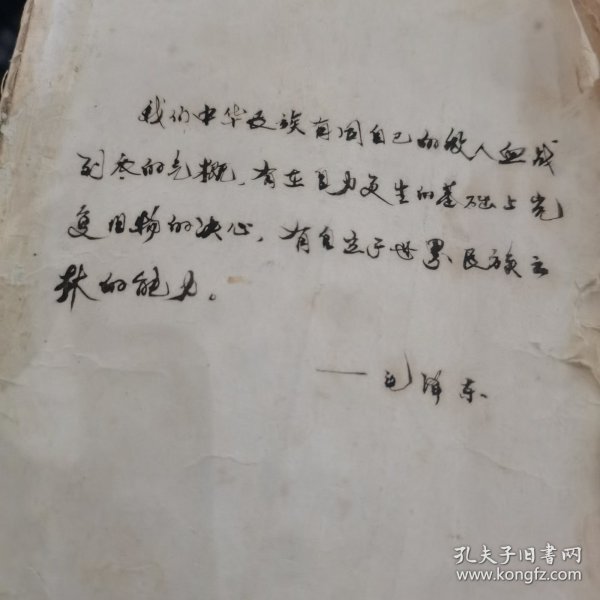 我们中华民族有同自己的敌人血战
到底的气概，有在自力更生的基础上光
复旧物的决心，有自立于世界民族之
林的能力。
——毛泽东
孔夫子旧书网
www.kongfz.com